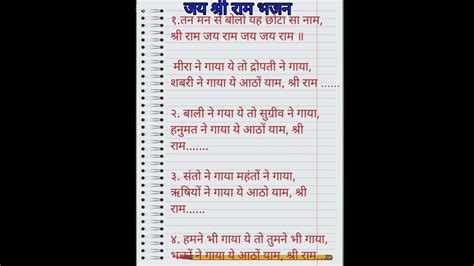 जय श्री राम भजन
१.तन मन से बोलो यह छोटा सा नाम,
श्री राम जय राम जय जय राम ॥
मीरा ने गाया ये तो द्रोपती ने गाया,
शबरी ने गाया ये आठों याम, श्री राम ......
२. बाली ने गया ये तो सुग्रीव ने गाया,
हनुमत ने गाया ये आठों याम, श्री
राम.......
३. संतो ने गाया महंतों ने गाया,
ऋषियों ने गाया ये आठो याम, श्री
राम.......
४. हमने भी गाया ये तो तुमने भी गाया,
भक्तों ने गाया ये आठों याम, श्री राम...